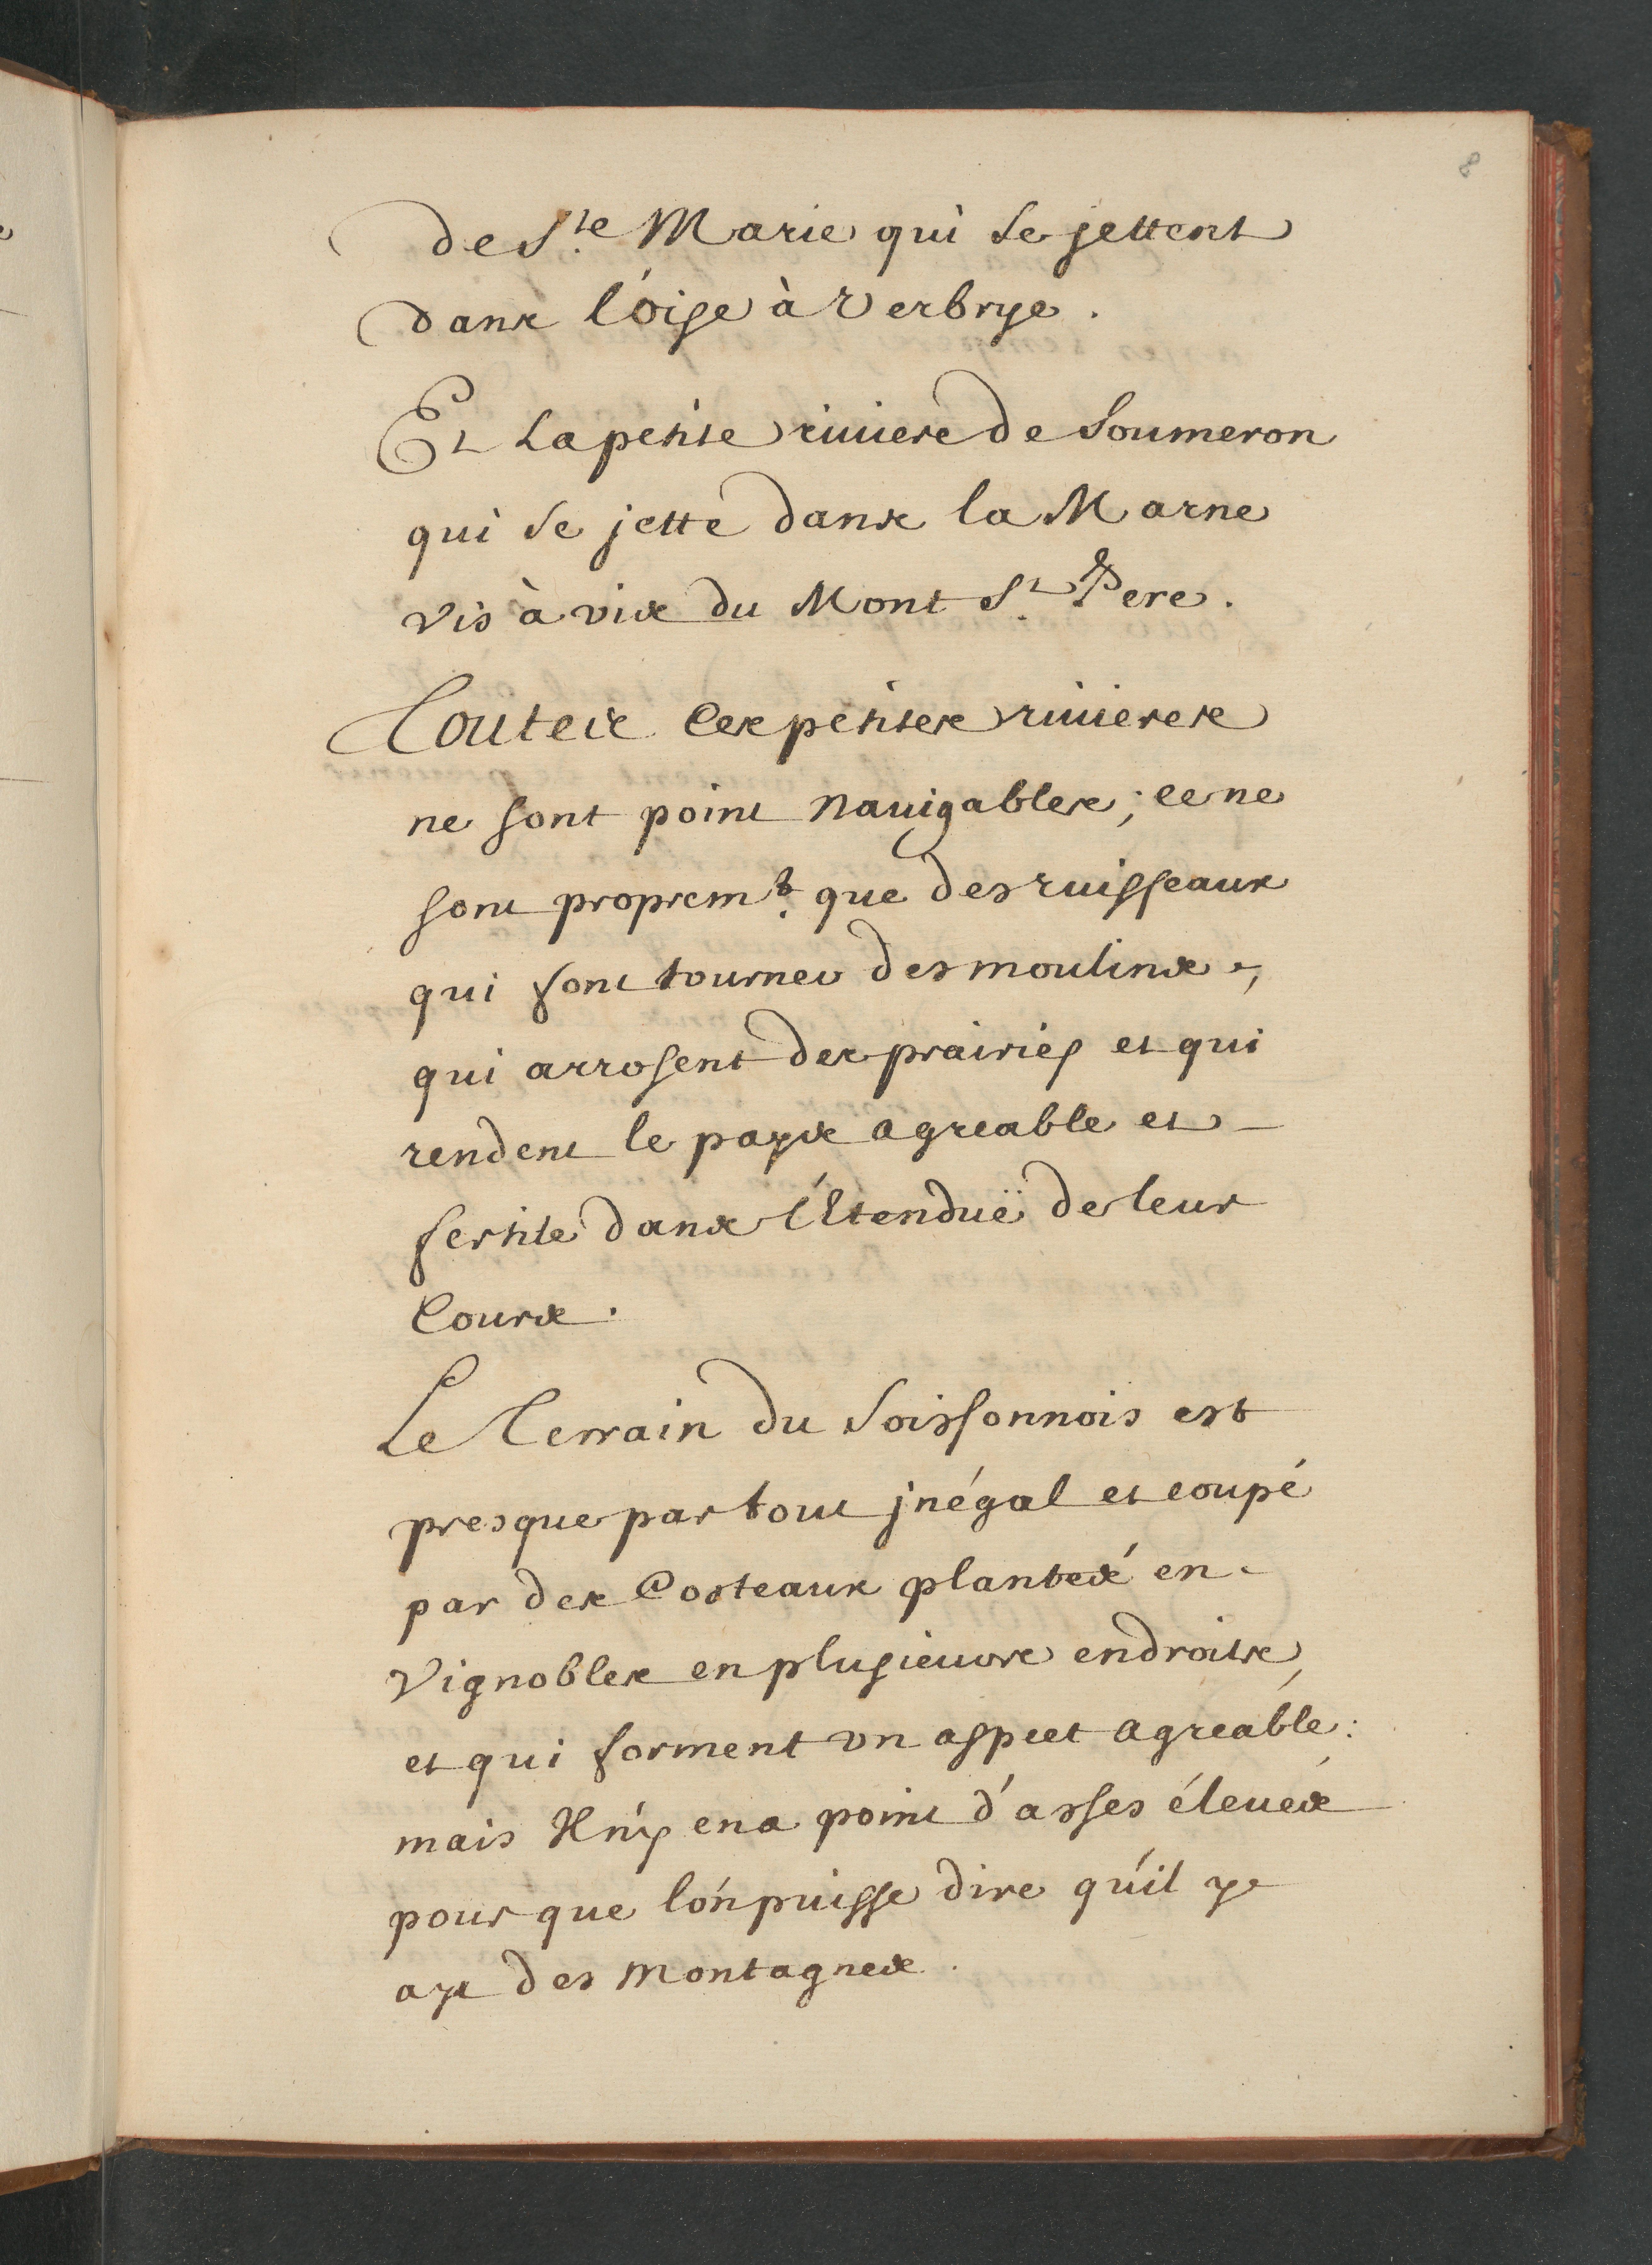 8
de S.te Marie qui se jettent
dans l'oise à Verbrye.
Et La petite riuiere de Soumeron
qui se jette dans la Marne
vis à vis du Mont S.t Pere.
Toutes Ces petites riuieres
ne sont point nauigables; ce ne
sont proprem.t que des ruisseaux
qui font tourner des moulins,
qui arrosent des prairiés et qui
rendent le pays agreable et
fertile dans l'Etenduë de leur
Cours.
Le Terrain du Soissonnois est
presque par tout jnégal et coupé
par des Costeaux plantés en
Vignobles en plusieurs endroits,
et qui forment vn aspect agreable:
mais Il n'y en a point d'asses éleués
pour que l'on puisse dire qu'il y
ayt des Montagnes.